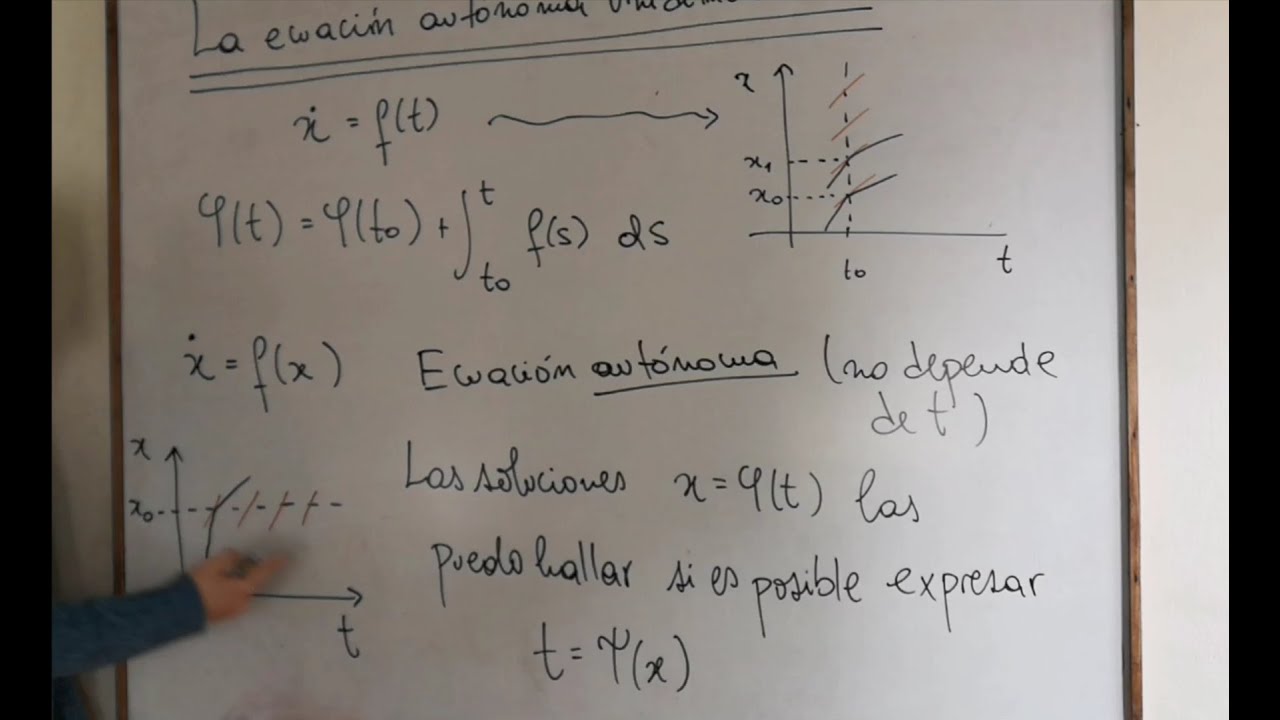 La ecuación autónoma
ẋ = f(t)
x
x₁
x₀
t₀
t
φ(t) = φ(t₀) + ∫ₜ₀ᵗ f(s) ds
ẋ = f(x) Ecuación autónoma (no depende
de t)
x
x₀
t
Las soluciones x = φ(t) las
puedo hallar si es posible expresar
t = Ψ(x)